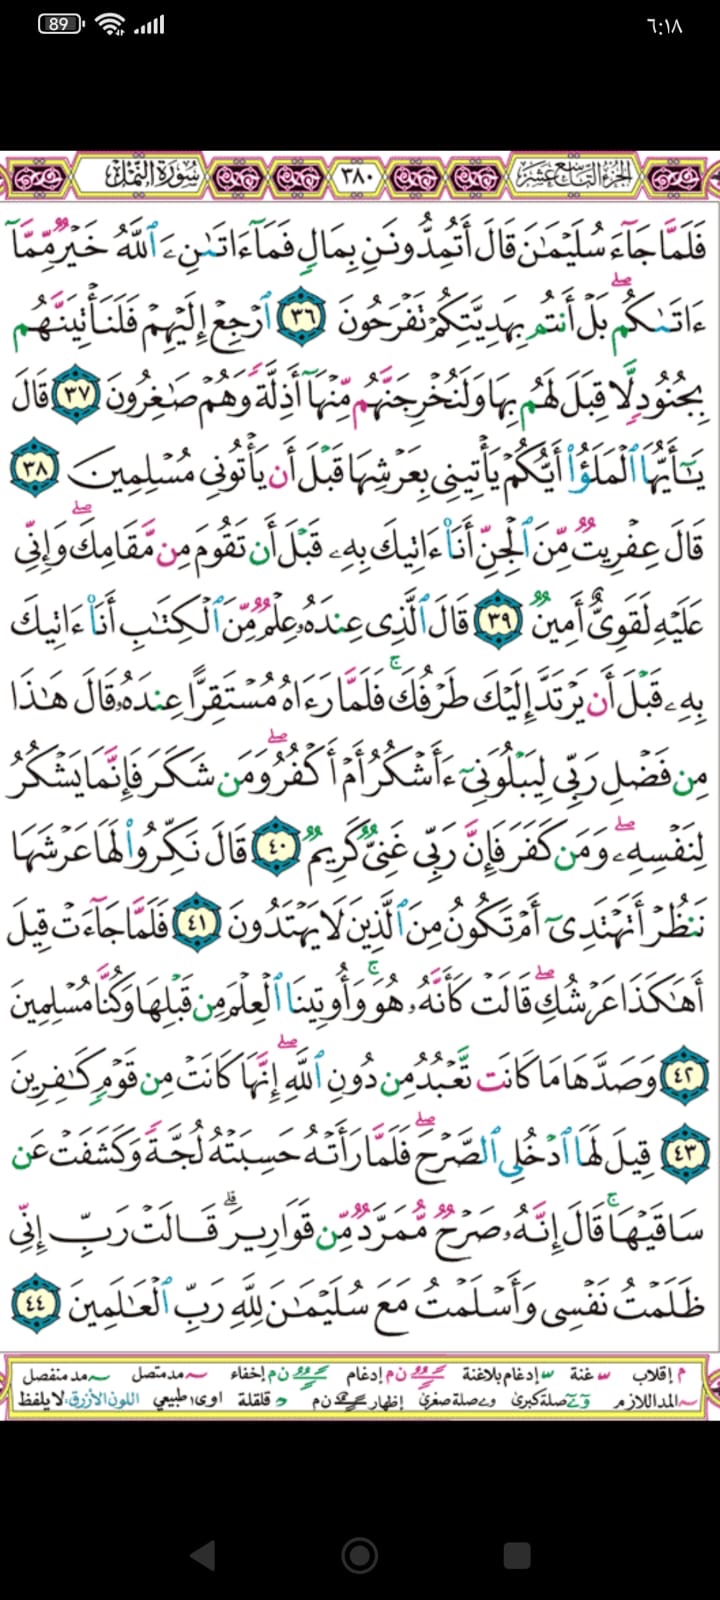 89
٦:١٨
الجزء التاسع عشر ٣٨٠ سورة النمل
فَلَمَّا جَآءَ سُلَيْمَـٰنَ قَالَ أَتُمِدُّونَنِ بِمَالٍ فَمَآ ءَاتَىٰنِۦَ ٱللَّهُ خَيْرٌ مِّمَّآ
ءَاتَىٰكُم ۖ بَلْ أَنتُم بِهَدِيَّتِكُمْ تَفْرَحُونَ ٣٦ ٱرْجِعْ إِلَيْهِمْ فَلَنَأْتِيَنَّهُم
بِجُنُودٍ لَّا قِبَلَ لَهُم بِهَا وَلَنُخْرِجَنَّهُم مِّنْهَآ أَذِلَّةً وَهُمْ صَـٰغِرُونَ ٣٧ قَالَ
يَـٰٓأَيُّهَا ٱلْمَلَؤُا۟ أَيُّكُمْ يَأْتِينِى بِعَرْشِهَا قَبْلَ أَن يَأْتُونِى مُسْلِمِينَ ٣٨
قَالَ عِفْرِيتٌ مِّنَ ٱلْجِنِّ أَنَا۠ ءَاتِيكَ بِهِۦ قَبْلَ أَن تَقُومَ مِن مَّقَامِكَ ۖ وَإِنِّى
عَلَيْهِ لَقَوِىٌّ أَمِينٌ ٣٩ قَالَ ٱلَّذِى عِندَهُۥ عِلْمٌ مِّنَ ٱلْكِتَـٰبِ أَنَا۠ ءَاتِيكَ
بِهِۦ قَبْلَ أَن يَرْتَدَّ إِلَيْكَ طَرْفُكَ ۚ فَلَمَّا رَءَاهُ مُسْتَقِرًّا عِندَهُۥ قَالَ هَـٰذَا
مِن فَضْلِ رَبِّى لِيَبْلُوَنِىٓ ءَأَشْكُرُ أَمْ أَكْفُرُ ۖ وَمَن شَكَرَ فَإِنَّمَا يَشْكُرُ
لِنَفْسِهِۦ ۖ وَمَن كَفَرَ فَإِنَّ رَبِّى غَنِىٌّ كَرِيمٌ ٤٠ قَالَ نَكِّرُوا۟ لَهَا عَرْشَهَا
نَنظُرْ أَتَهْتَدِىٓ أَمْ تَكُونُ مِنَ ٱلَّذِينَ لَا يَهْتَدُونَ ٤١ فَلَمَّا جَآءَتْ قِيلَ
أَهَـٰكَذَا عَرْشُكِ ۖ قَالَتْ كَأَنَّهُۥ هُوَ ۚ وَأُوتِينَا ٱلْعِلْمَ مِن قَبْلِهَا وَكُنَّا مُسْلِمِينَ
٤٢ وَصَدَّهَا مَا كَانَت تَّعْبُدُ مِن دُونِ ٱللَّهِ ۖ إِنَّهَا كَانَتْ مِن قَوْمٍ كَـٰفِرِينَ
٤٣ قِيلَ لَهَا ٱدْخُلِى ٱلصَّرْحَ ۖ فَلَمَّا رَأَتْهُ حَسِبَتْهُ لُجَّةً وَكَشَفَتْ عَن
سَاقَيْهَا ۚ قَالَ إِنَّهُۥ صَرْحٌ مُّمَرَّدٌ مِّن قَوَارِيرَ ۗ قَالَتْ رَبِّ إِنِّى
ظَلَمْتُ نَفْسِى وَأَسْلَمْتُ مَعَ سُلَيْمَـٰنَ لِلَّهِ رَبِّ ٱلْعَـٰلَمِينَ ٤٤
م إقلاب غنة إدغام بلاغنة ن م إدغام ن م إخفاء مد متصل مد منفصل
المد اللازم صلة كبرى صلة صغرى إظهار ن م قلقلة اوى طبيعي اللون الأزرق: لا يلفظ